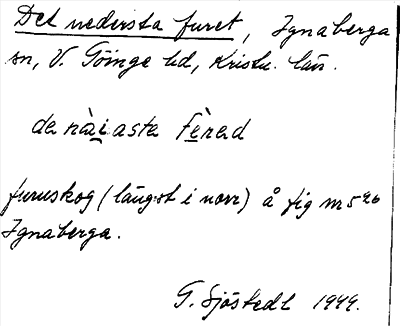 Det nedersta furet, Ignaberga
sn, V. Göinge hd, Krist. län.
de nàiasta fèred
furuskog (längst i norr) å fig nr 5
Ignaberga.
G. Sjöstedt 1949.